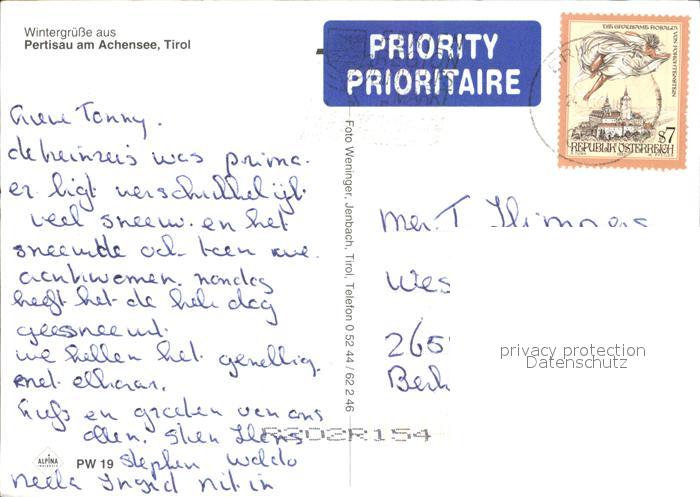 Wintergrüße aus
Pertisau am Achensee, Tirol
PRIORITY
PRIORITAIRE
DIE GRAUSAME ROSALIA VON FORCHTENSTEIN
S7
REPUBLIK ÖSTERREICH
Lieve Tonny.
de heinreis was prima.
er ligt verschrikkelijk
veel sneeuw. en het
sneeuwde ook toen we
aankwamen. maandag
heeft het de hele dag
gesneeuwt.
we hebben het gezellig.
met elkaar.
liefs en groeten van ons
allen.
Stephen
Neela Ingrid
Foto Weninger, Jenbach, Tirol, Telefon 0 52 44 / 62 2 46
Mev. T.
Wes
265
Berk
privacy protection
Datenschutz
R202R154
ALPINA
PW 19